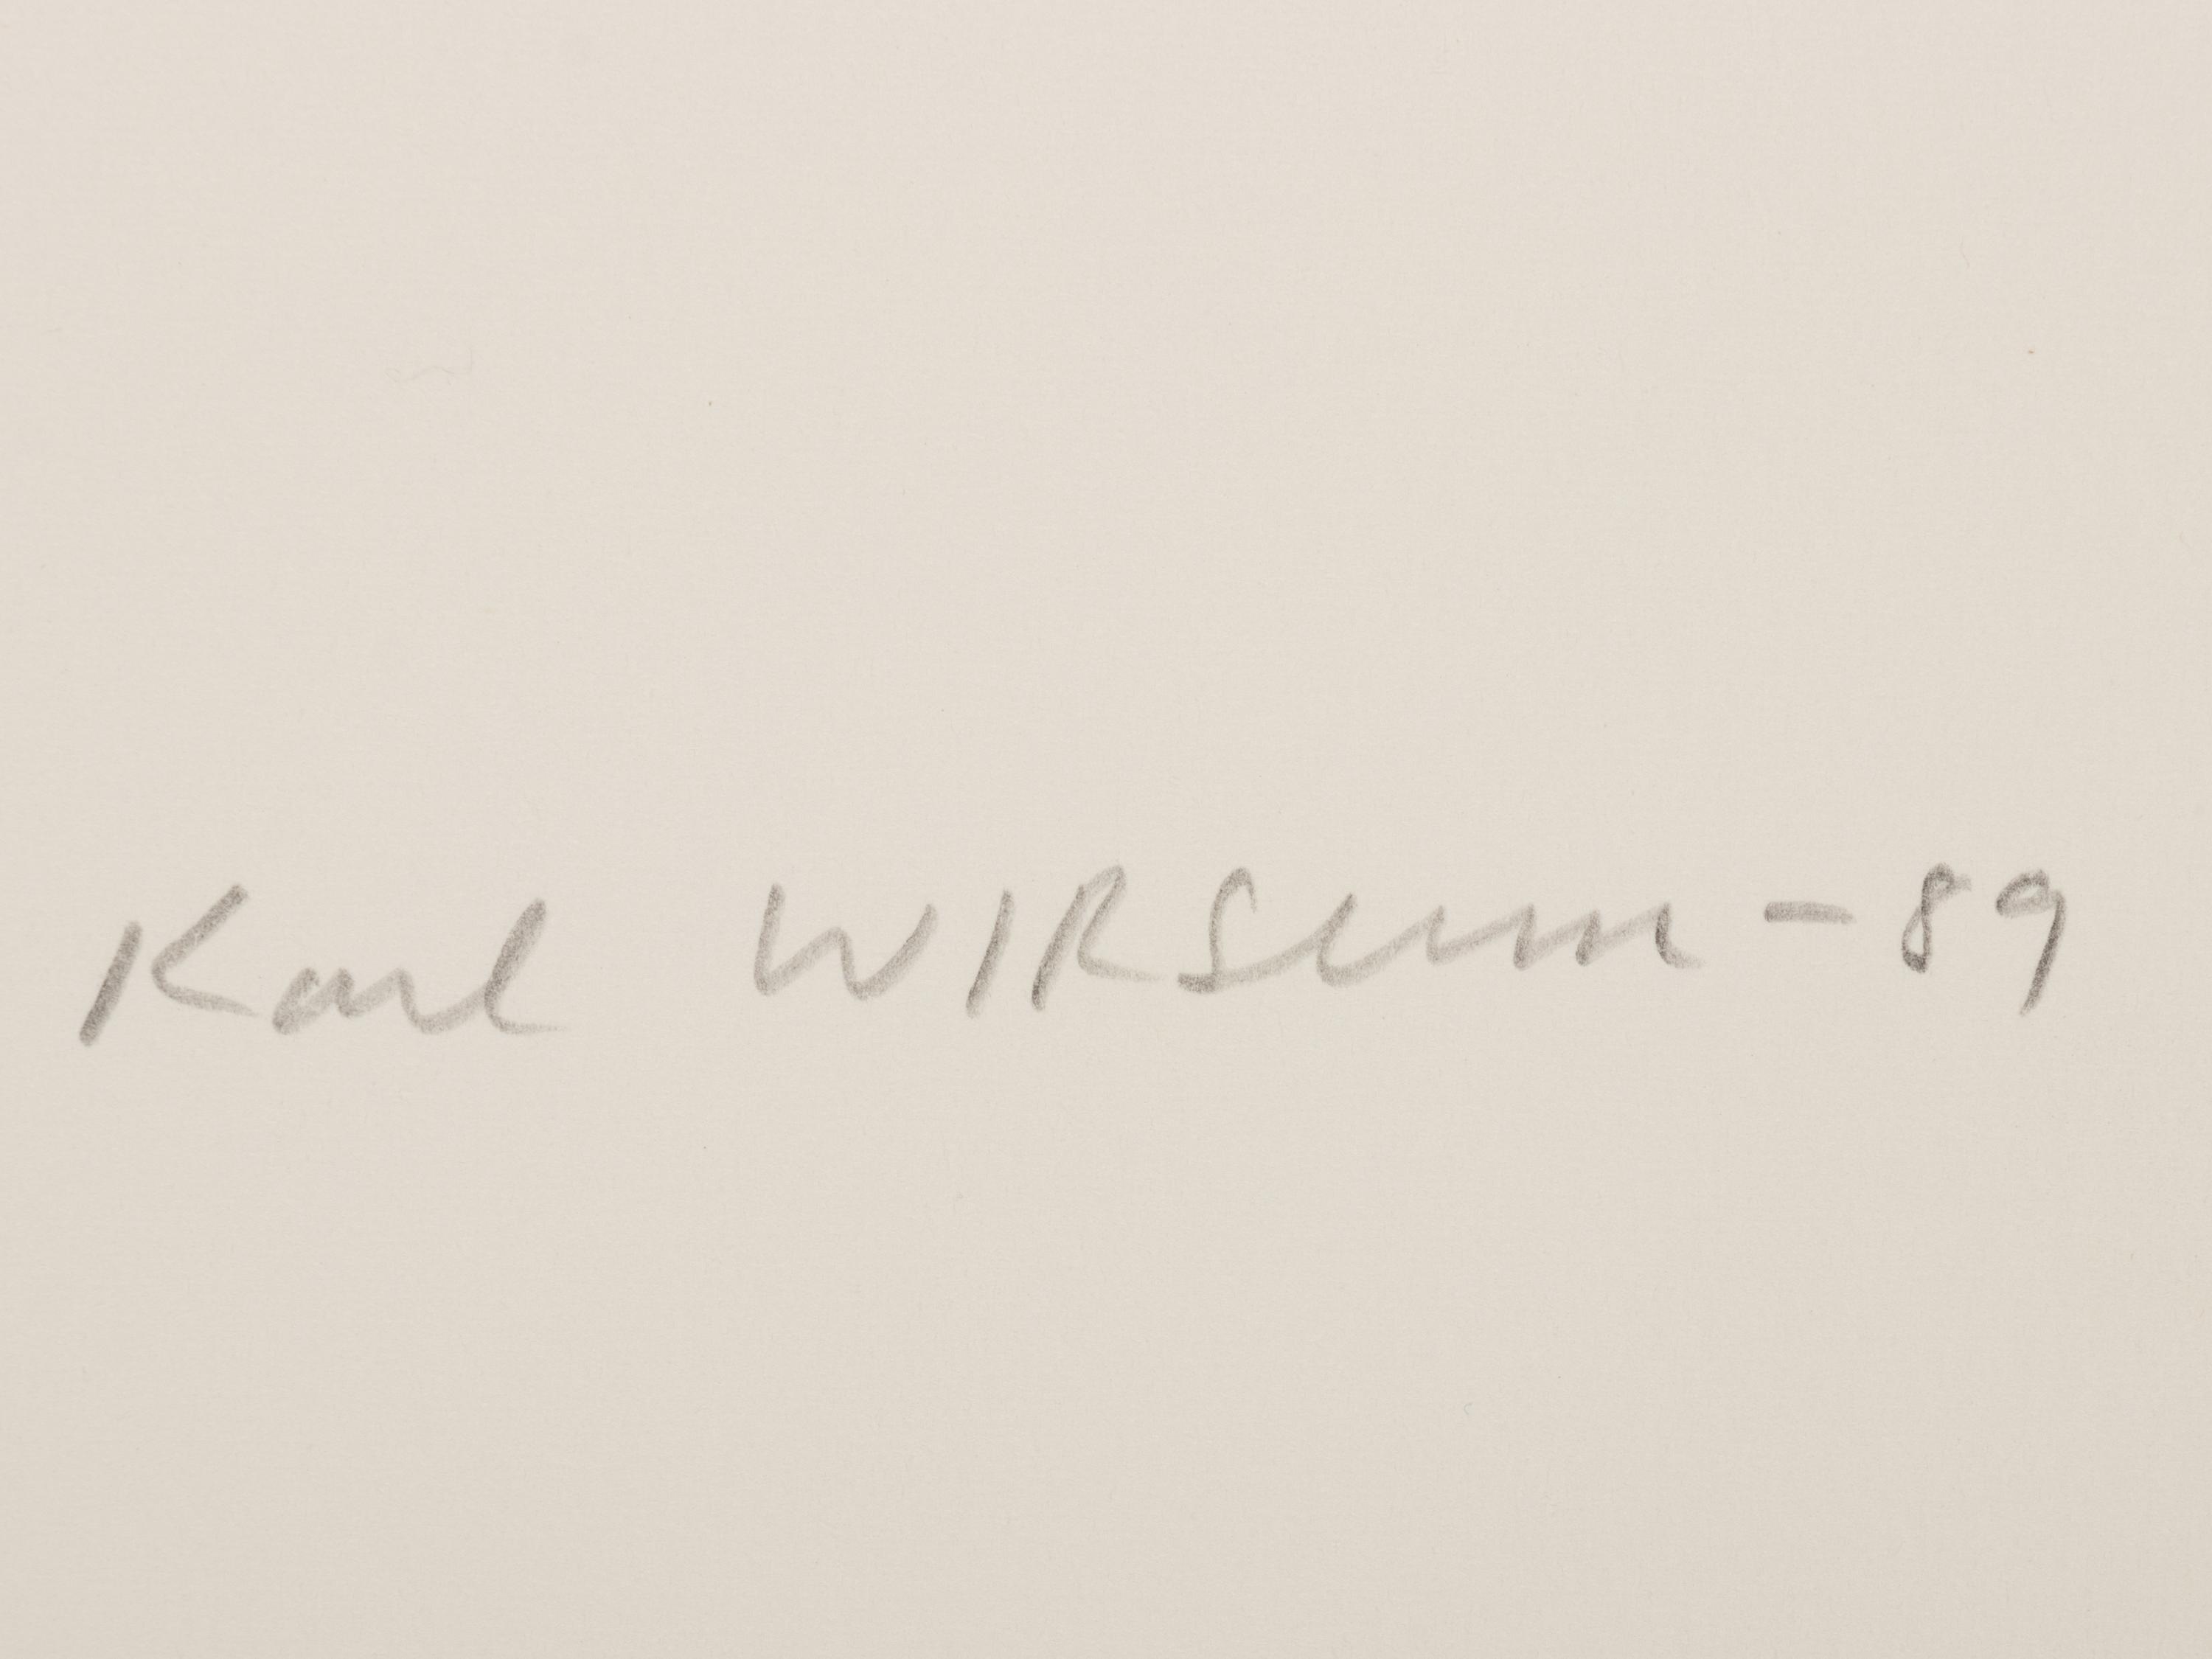 Karl WIRSum - 89